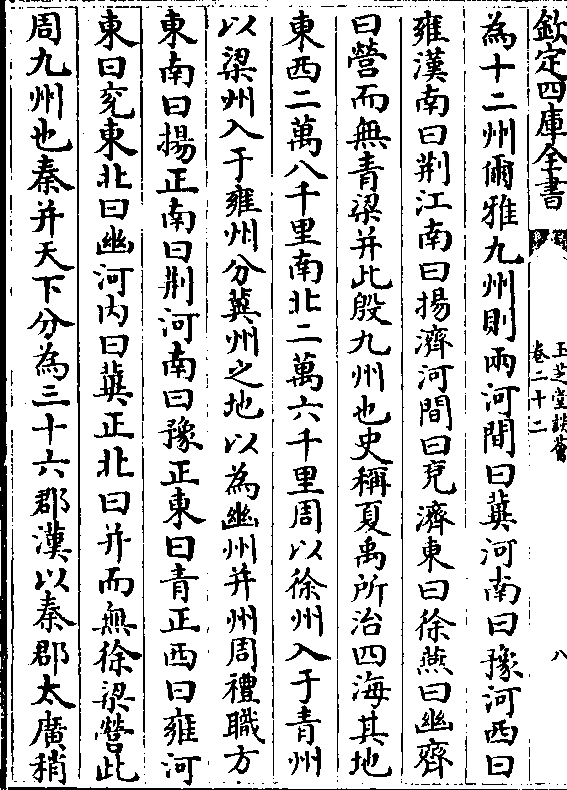 欽定四庫全書
玉芝堂談薈
卷二十二
八
為十二州爾雅九州則兩河間曰冀河南曰豫河西曰
雍漢南曰荆江南曰揚濟河間曰兖濟東曰徐燕曰幽齊
曰營而無青梁并此殷九州也史稱夏禹所治四海其地
東西二萬八千里南北二萬六千里周以徐州入于青州
以梁州入于雍州分冀州之地以為幽州并州周禮職方
東南曰揚正南曰荆河南曰豫正東曰青正西曰雍河
東曰兖東北曰幽河内曰冀正北曰并而無徐梁營此
周九州也秦并天下分為三十六郡漢以秦郡太廣稍